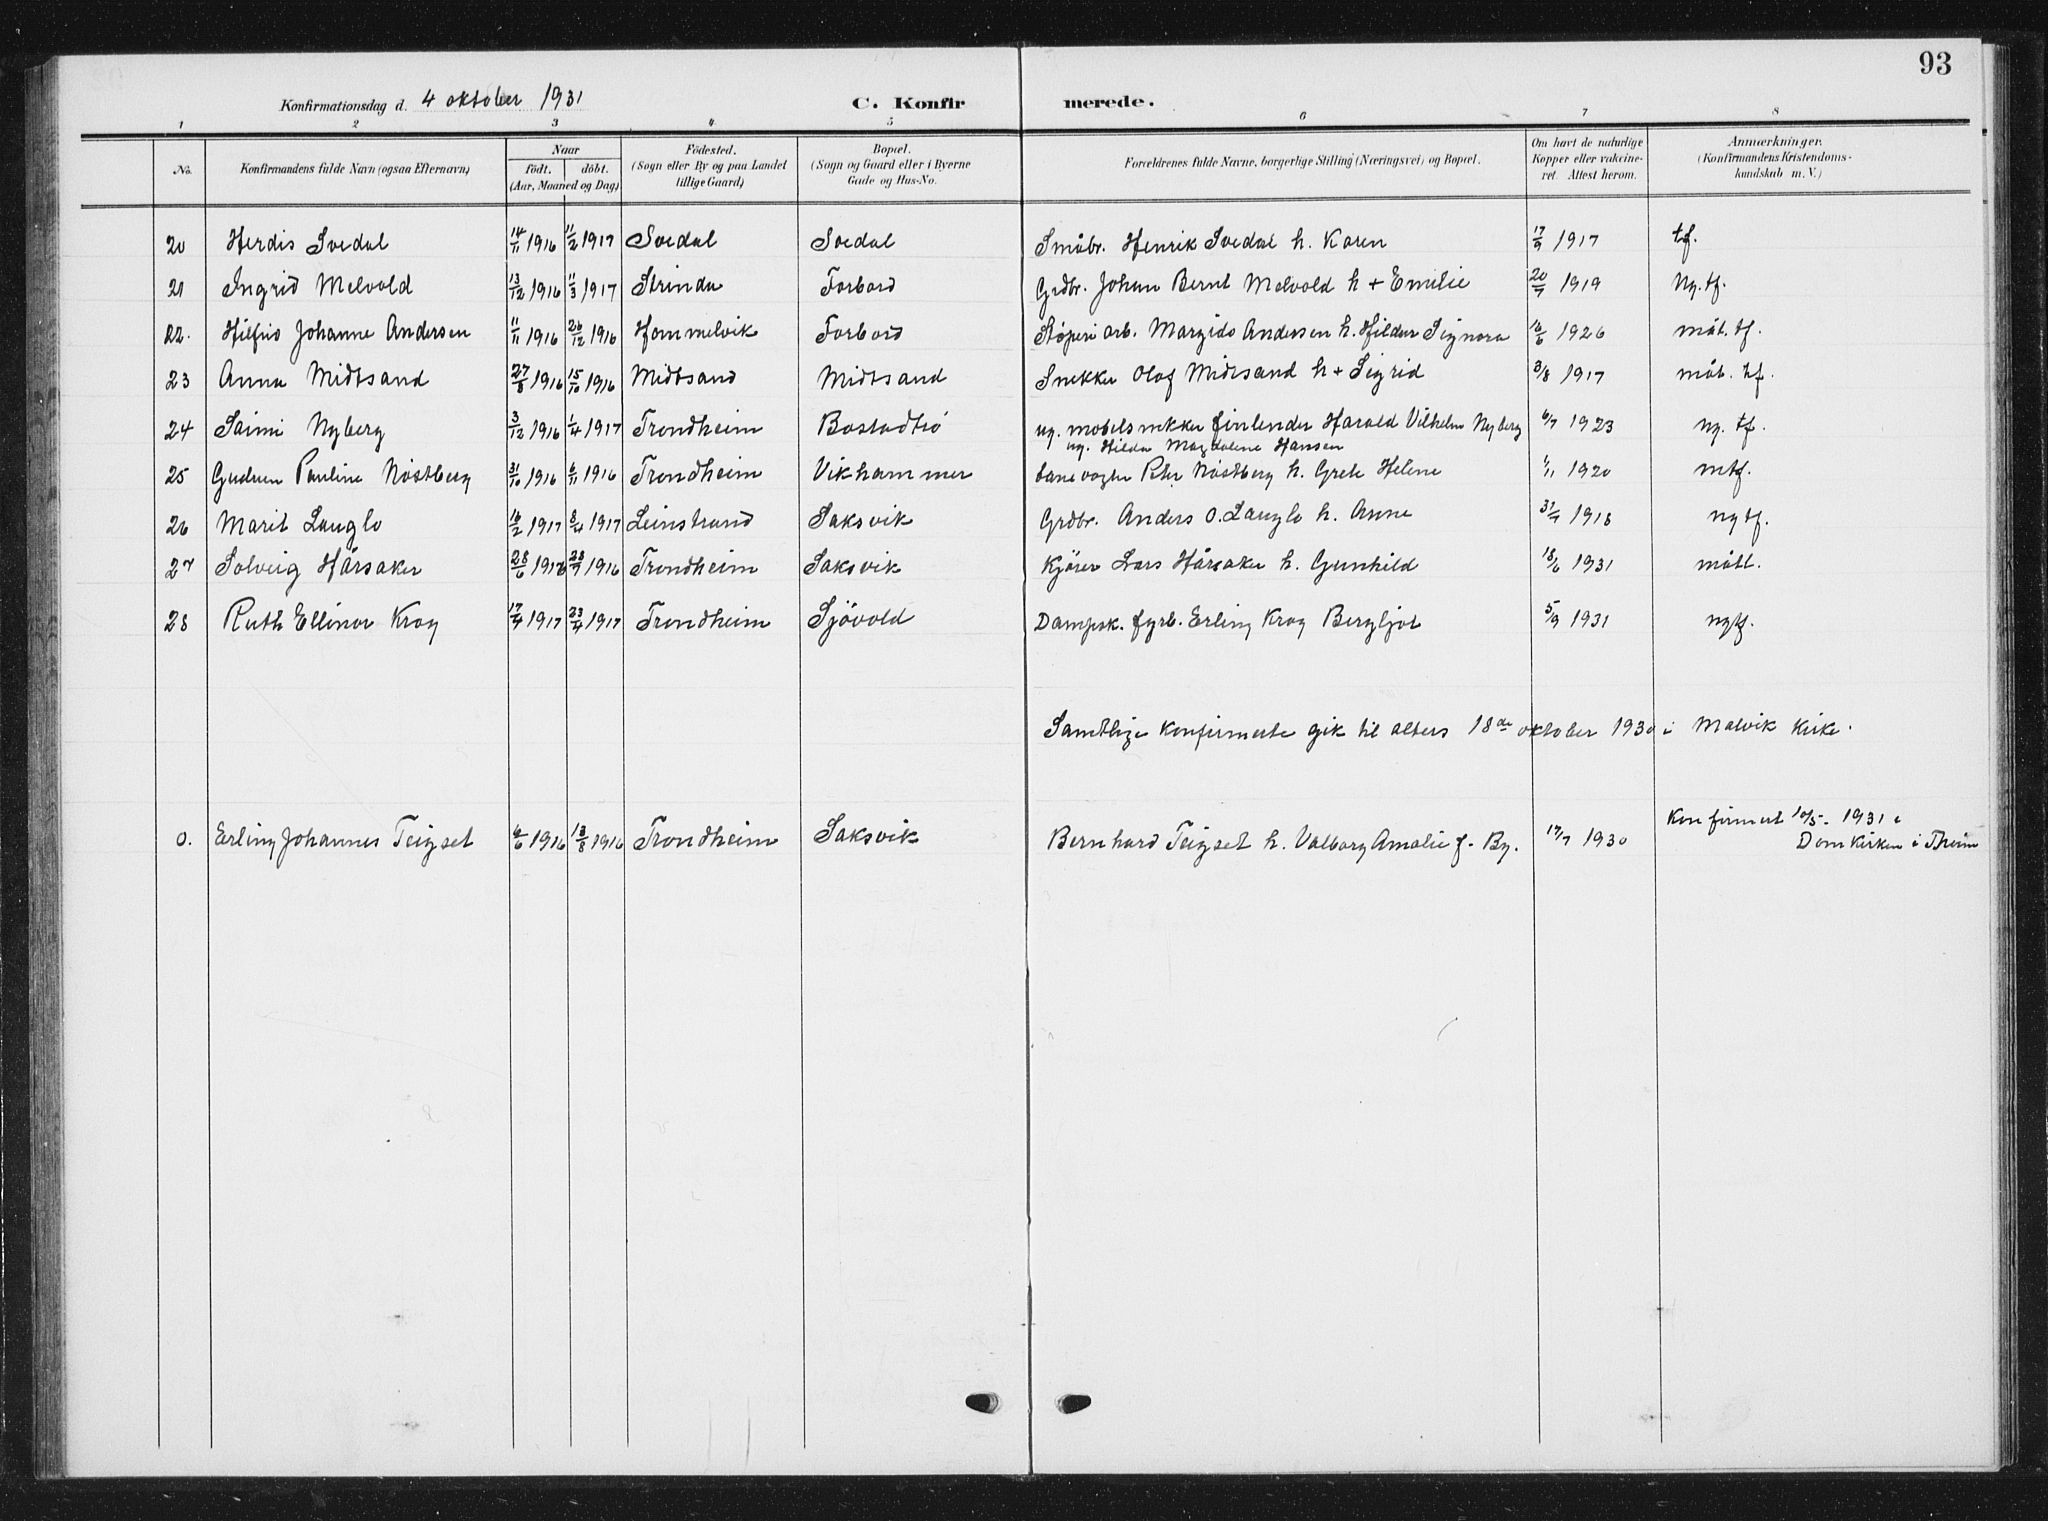 93
Konfirmationsdag d. 4 oktober 1931 C. Konfir merede.
1 2 3 4 5 6 7 8
No. Konfirmandens fulde Navn (ogsaa Efternavn) Naar födt. döbt. (Aar, Maaned og Dag) Födested. (Sogn eller By og paa Landet tillige Gaard) Bopæl. (Sogn og Gaard eller i Byerne Gade og Hus-No. Forældrenes fulde Navne, borgerlige Stilling (Næringsvei) og Bopæl. Om havt de naturlige Kopper eller vakcineret. Attest herom. Anmærkninger. (Konfirmandens Kristendomskundskab m. V.)
20 Herdis Svedal 14/11 1916 11/2 1917 Svedal Svedal Småbr. Henrik Svedal h. Karen 17/9 1917 tf.
21 Ingrid Melvold 13/12 1916 11/3 1917 Strinda Forbord Grdbr. Johan Bernt Melvold h + Emilie 20/7 1919 Ng. tf.
22. Hilfrid Johanne Andersen 11/11 1916 26/12 1916 Hommelvik Forbord Støperi arb. Margido Andersen h. Hildur Signora 16/6 1926 måt. tf.
23 Anna Midtsand 27/8 1916 15/10 1916 Midtsand Midtsand Snekker Olaf Midtsand h + Sigrid 3/8 1917 måt. tf.
24 Saimi Nyberg 3/12 1916 1/4 1917 Trondheim Bostadtrø ug. møbelsnekker finlender Harald Vilhelm Nyberg 6/7 1923 ng. tf.
ug. Hilda Magdalene Hansen
25 Gudrun Pauline Nöstberg 31/10 1916 6/11 1916 Trondheim Vikhammer banevogter Peter Nöstberg h. Grete Helene 1/11 1920 mtf.
26 Marit Lauglo 16/2 1917 8/4 1917 Leinstrand Saksvik Grdbr. Anders O. Lauglo h. Anne 31/7 1918 ngtf.
27 Solveig Hårsaker 28/6 1916 23/7 1916 Trondheim Saksvik Kjörer Lars Hårsaker h. Gunhild 18/6 1931 måtl.
28 Ruth Ellinor Krog 17/4 1917 23/4 1917 Trondheim Sjövold Dampsk. fyrb. Erling Krog Bergljot 5/9 1931 ngtf.
Samtlige konfirmerte gik til alters 18de oktober 1930 i Malvik Kirke.
0. Erling Johannes Teigset 6/6 1916 13/8 1916 Trondheim Saksvik Bernhard Teigset h. Valborg Amalie f. By. 17/7 1930 Konfirmert 10/5- 1931 i
Domkirken i Theim